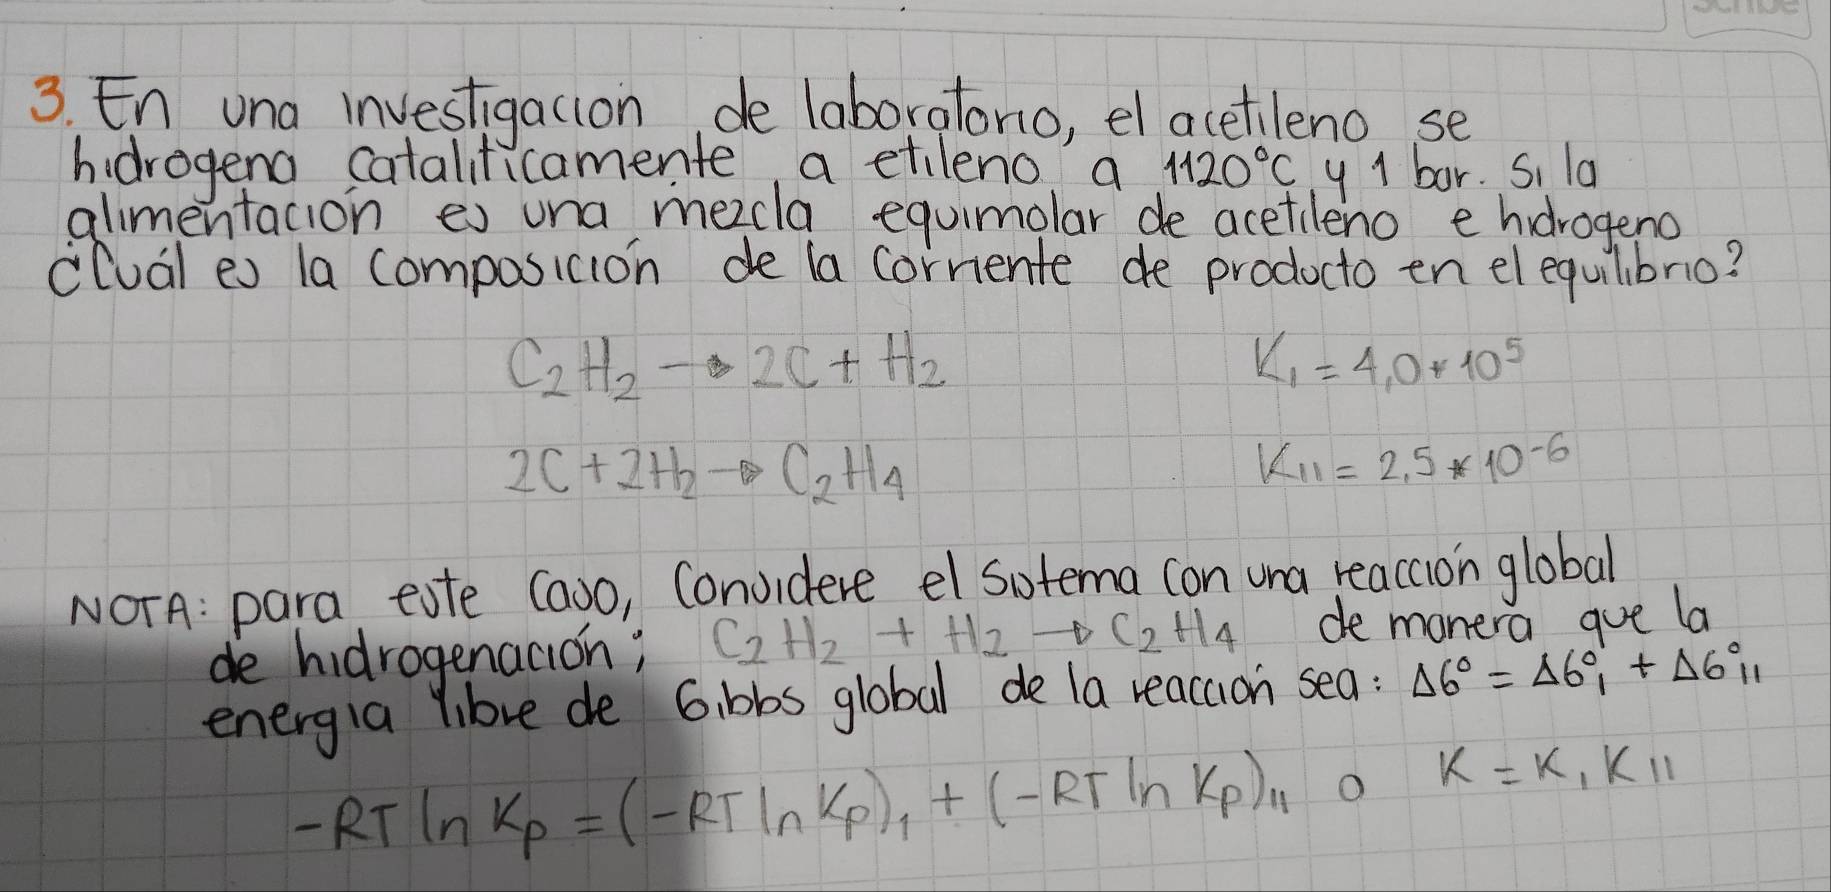 3. En una investigación de laboratorio, el acetileno se
hidrogena cataliticamente a etileno a 1120°C y 1 bar. Si la
alimentación es una mezcla equimolar de acetileno e hidrogeno
¿Cuál es la composición de la corriente de producto en el equilibrio?
C₂H₂ → 2C + H₂ K₁ = 4,0*10⁵
2C + 2H₂ → C₂H₄ K₁₁ = 2.5*10⁻⁶
NOTA: para este caso, considere el sistema con una reacción global
de hidrogenación; C₂H₂ + H₂ → C₂H₄ de manera que la
energia libre de Gibbs global de la reacción sea: ΔG° = ΔG°₁ + ΔG°₁₁
-RT ln Kp = (-RT ln Kp)₁ + (-RT ln Kp)₁₁ o K = K₁K₁₁